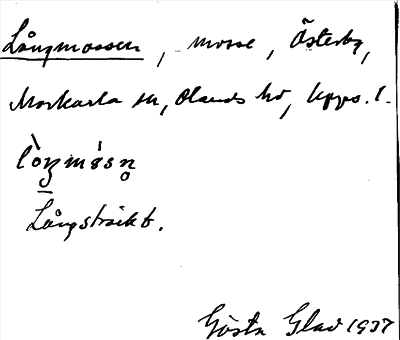 Långmossen, mosse, Österby,
Morkarla sn, Olands hd, Upps. l.
Långsträckt.
Gösta Glad 1937